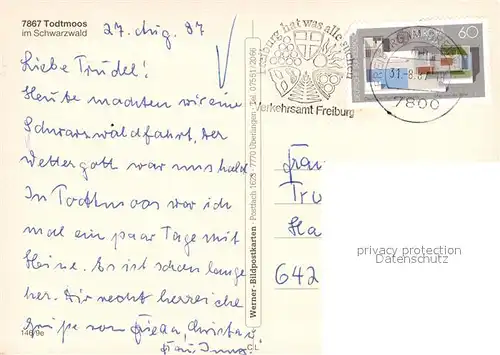 7867 Todtmoos
im Schwarzwald
27. Aug. 87
Liebe Trudel!
Heute machten wir eine
Schwarzwaldfahrt, der
Wettergott war uns hold
In Todtmoos war ich
mal ein paar Tage mit
Heine. Es ist schon lange
her. Dir recht herzliche
Grüße von
146/9e
Werner-Bildpostkarten · Postfach 1623 · 7770 Überlingen · Tel. 07551 2066
Freiburg hat was alle suchen
Verkehrsamt Freiburg
31.-8.87
7800
60
Frau
Tru
Ha
642
privacy protection
Datenschutz